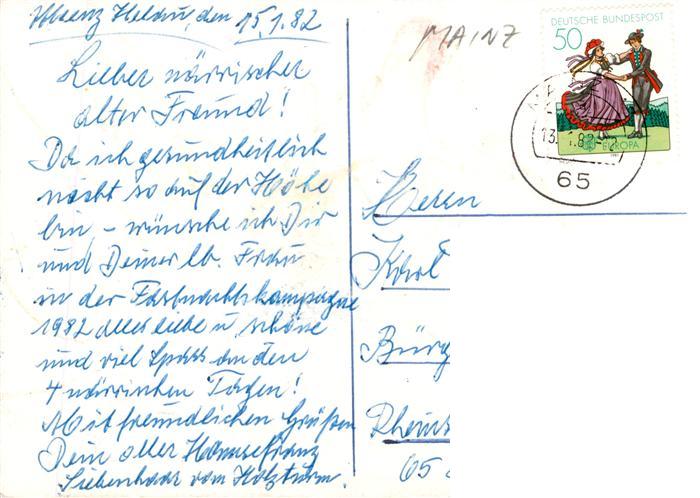 Mainz Helau, den 15.1.82
Lieber närrischer
alter Freund!
Da ich gesundheitlich
nicht so auf der Höhe
bin - wünsche ich Dir
und Deiner lb. Frau
in der Fastnachtskampagne
1982 alles liebe u. schöne
und viel Spass an den
4 närrischen Tagen!
Mit freundlichen Grüßen
Dein alter Hannefranz
Siebenhaar vom Holzturm.
MAINZ
DEUTSCHE BUNDESPOST
50
EUROPA
13.
82
65
Herrn
Karl
Bürg
Rheins
65